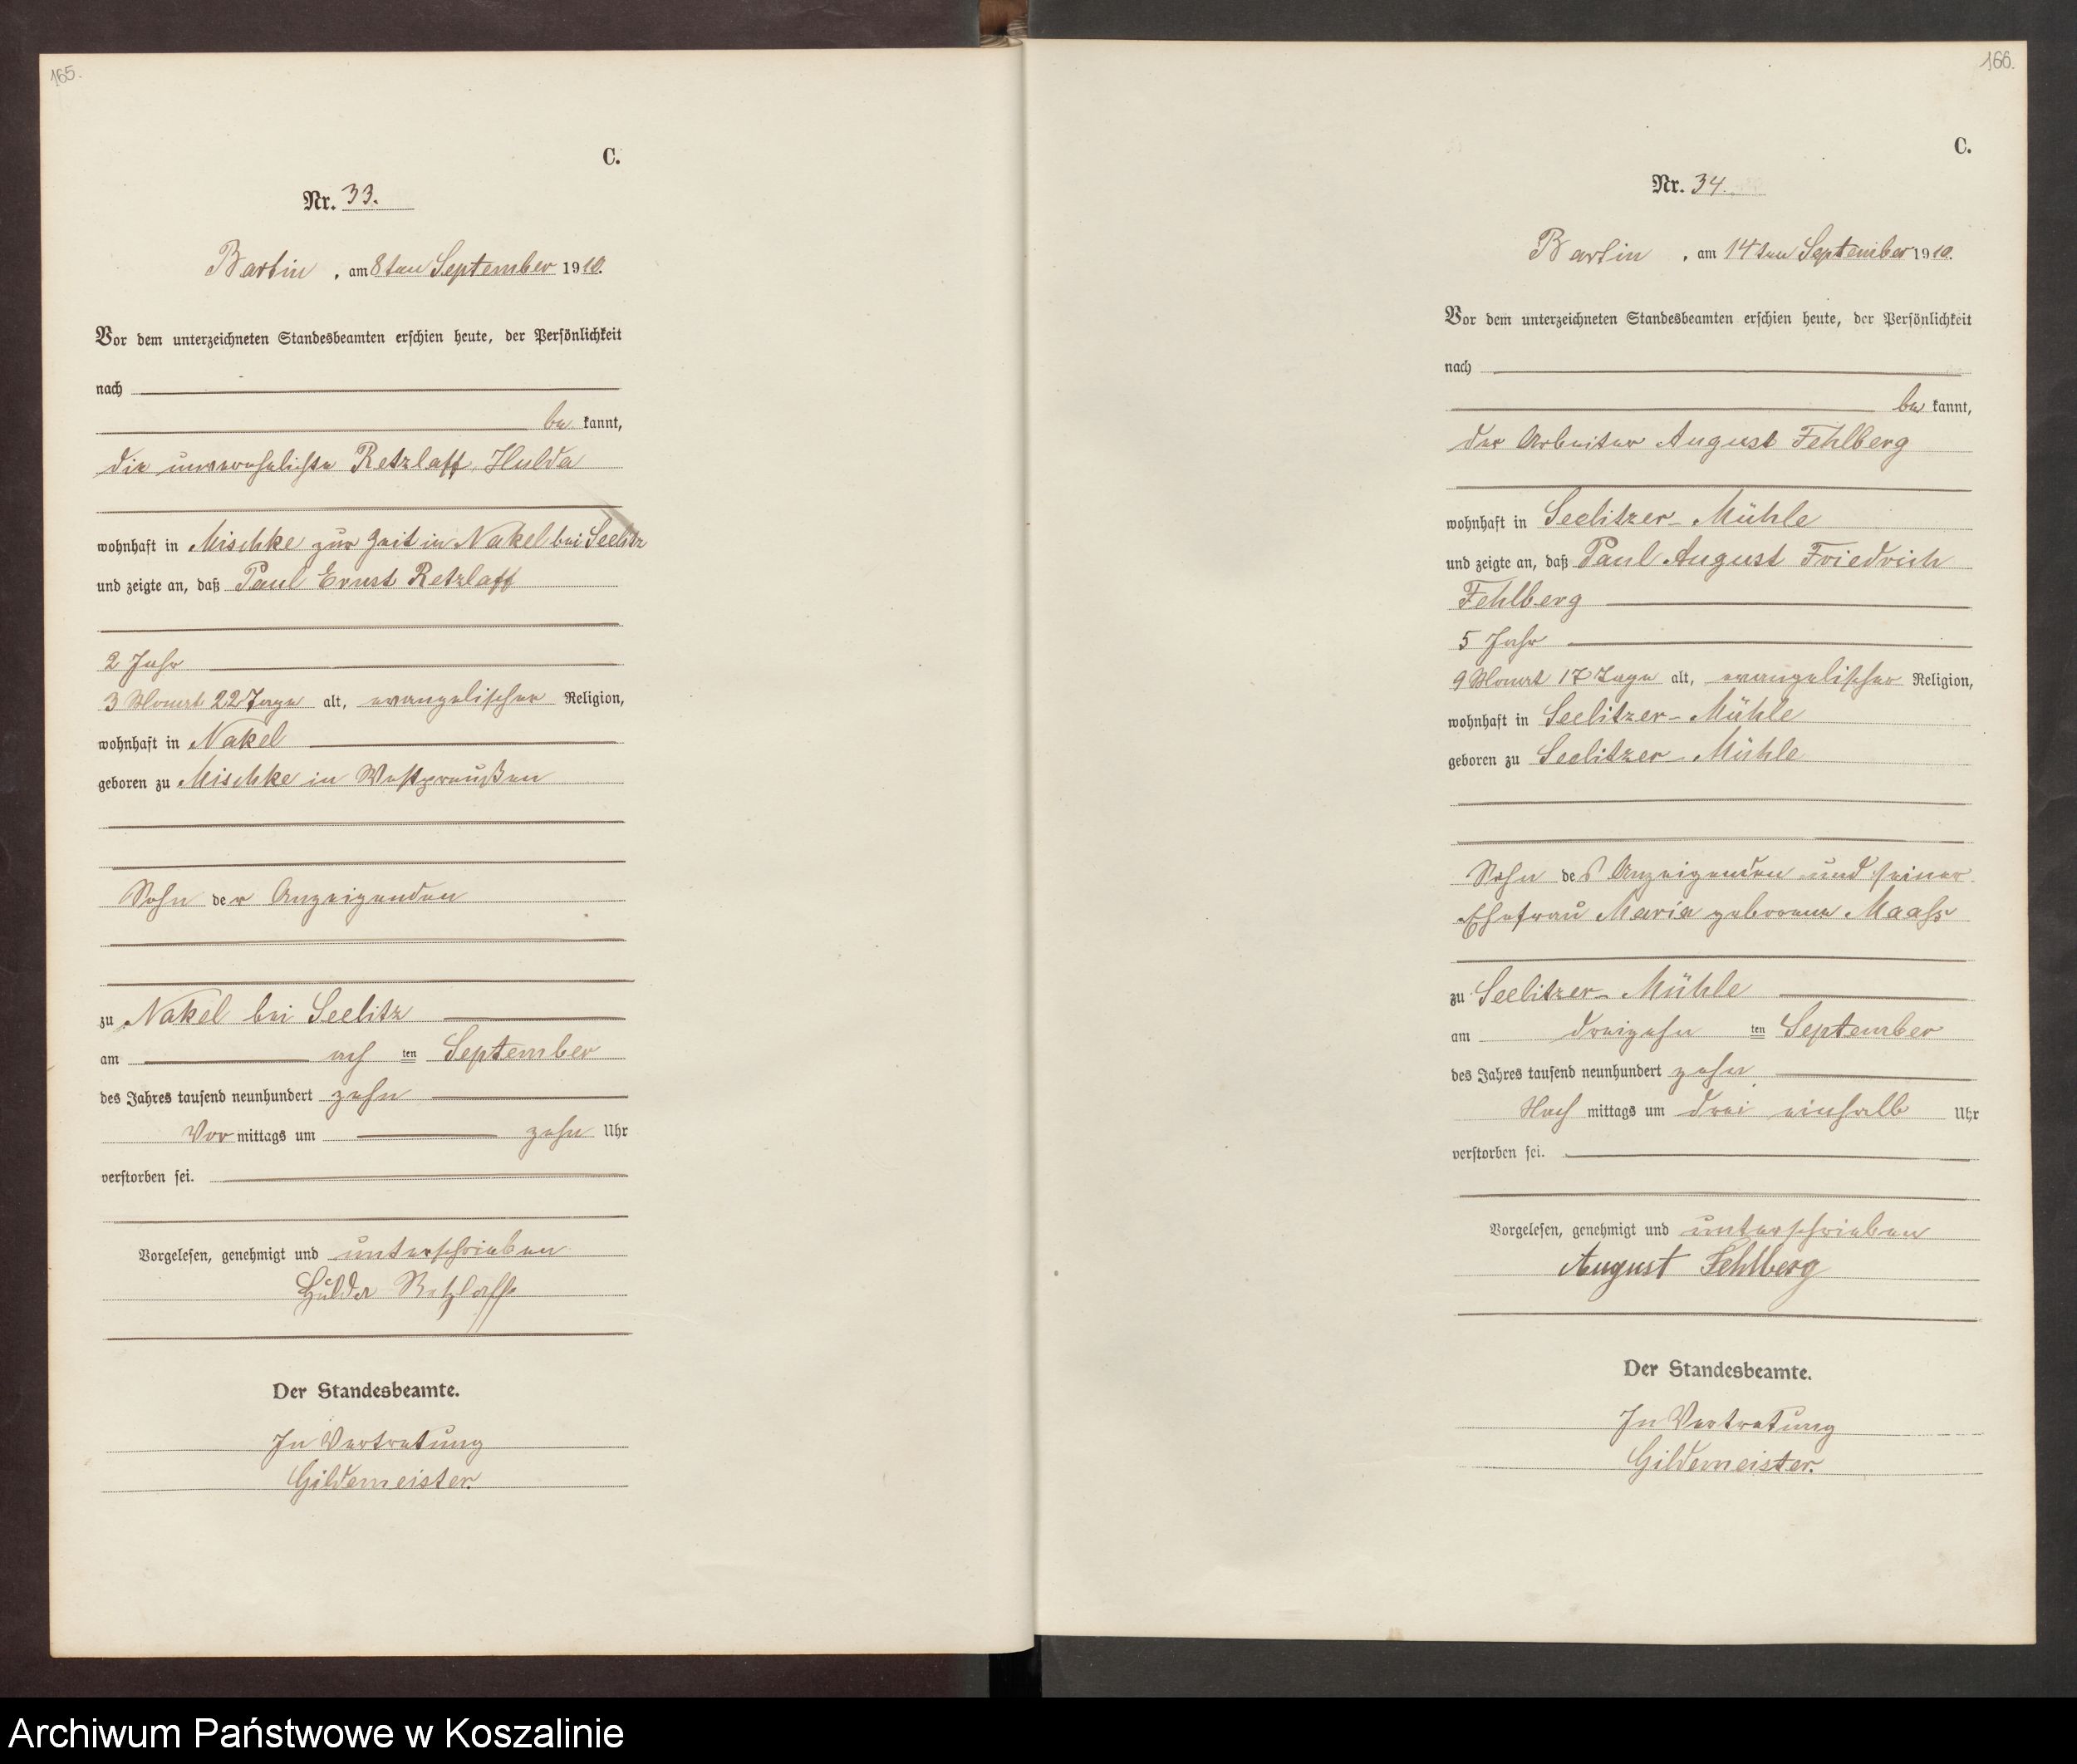 165.
C.
Nr. 33.
Bartin, am 8ten September 1910.
Vor dem unterzeichneten Standesbeamten erschien heute, der Persönlichkeit
nach
be kannt,
die unverehelichte Retzlaff, Hulda
wohnhaft in Mischke zur Zeit in Nakel bei Seelitz
und zeigte an, daß Paul Ernst Retzlaff
2 Jahr
3 Monat 22 Tage alt, evangelischer Religion,
wohnhaft in Nakel
geboren zu Mischke in Westpreußen
Sohn der Anzeigenden
zu Nakel bei Seelitz
am ach ten September
des Jahres tausend neunhundert zehn
Vor mittags um zehn Uhr
verstorben sei.
Vorgelesen, genehmigt und unterschrieben
Hulda Retzlaff
Der Standesbeamte.
In Vertretung
Gildemeister.
166.
C.
Nr. 34.
Bartin, am 14ten September 1910.
Vor dem unterzeichneten Standesbeamten erschien heute, der Persönlichkeit
nach
be kannt,
der Arbeiter August Fehlberg
wohnhaft in Seelitzer-Mühle
und zeigte an, daß Paul August Friedrich
Fehlberg
5 Jahr
9 Monat 17 Tage alt, evangelischer Religion,
wohnhaft in Seelitzer-Mühle
geboren zu Seelitzer-Mühle
Sohn des Anzeigenden und seiner
Ehefrau Maria geborene Maaß
zu Seelitzer-Mühle
am dreizehn ten September
des Jahres tausend neunhundert zehn
Nach mittags um drei einhalb Uhr
verstorben sei.
Vorgelesen, genehmigt und unterschrieben
August Fehlberg
Der Standesbeamte.
In Vertretung
Gildemeister.
Archiwum Państwowe w Koszalinie